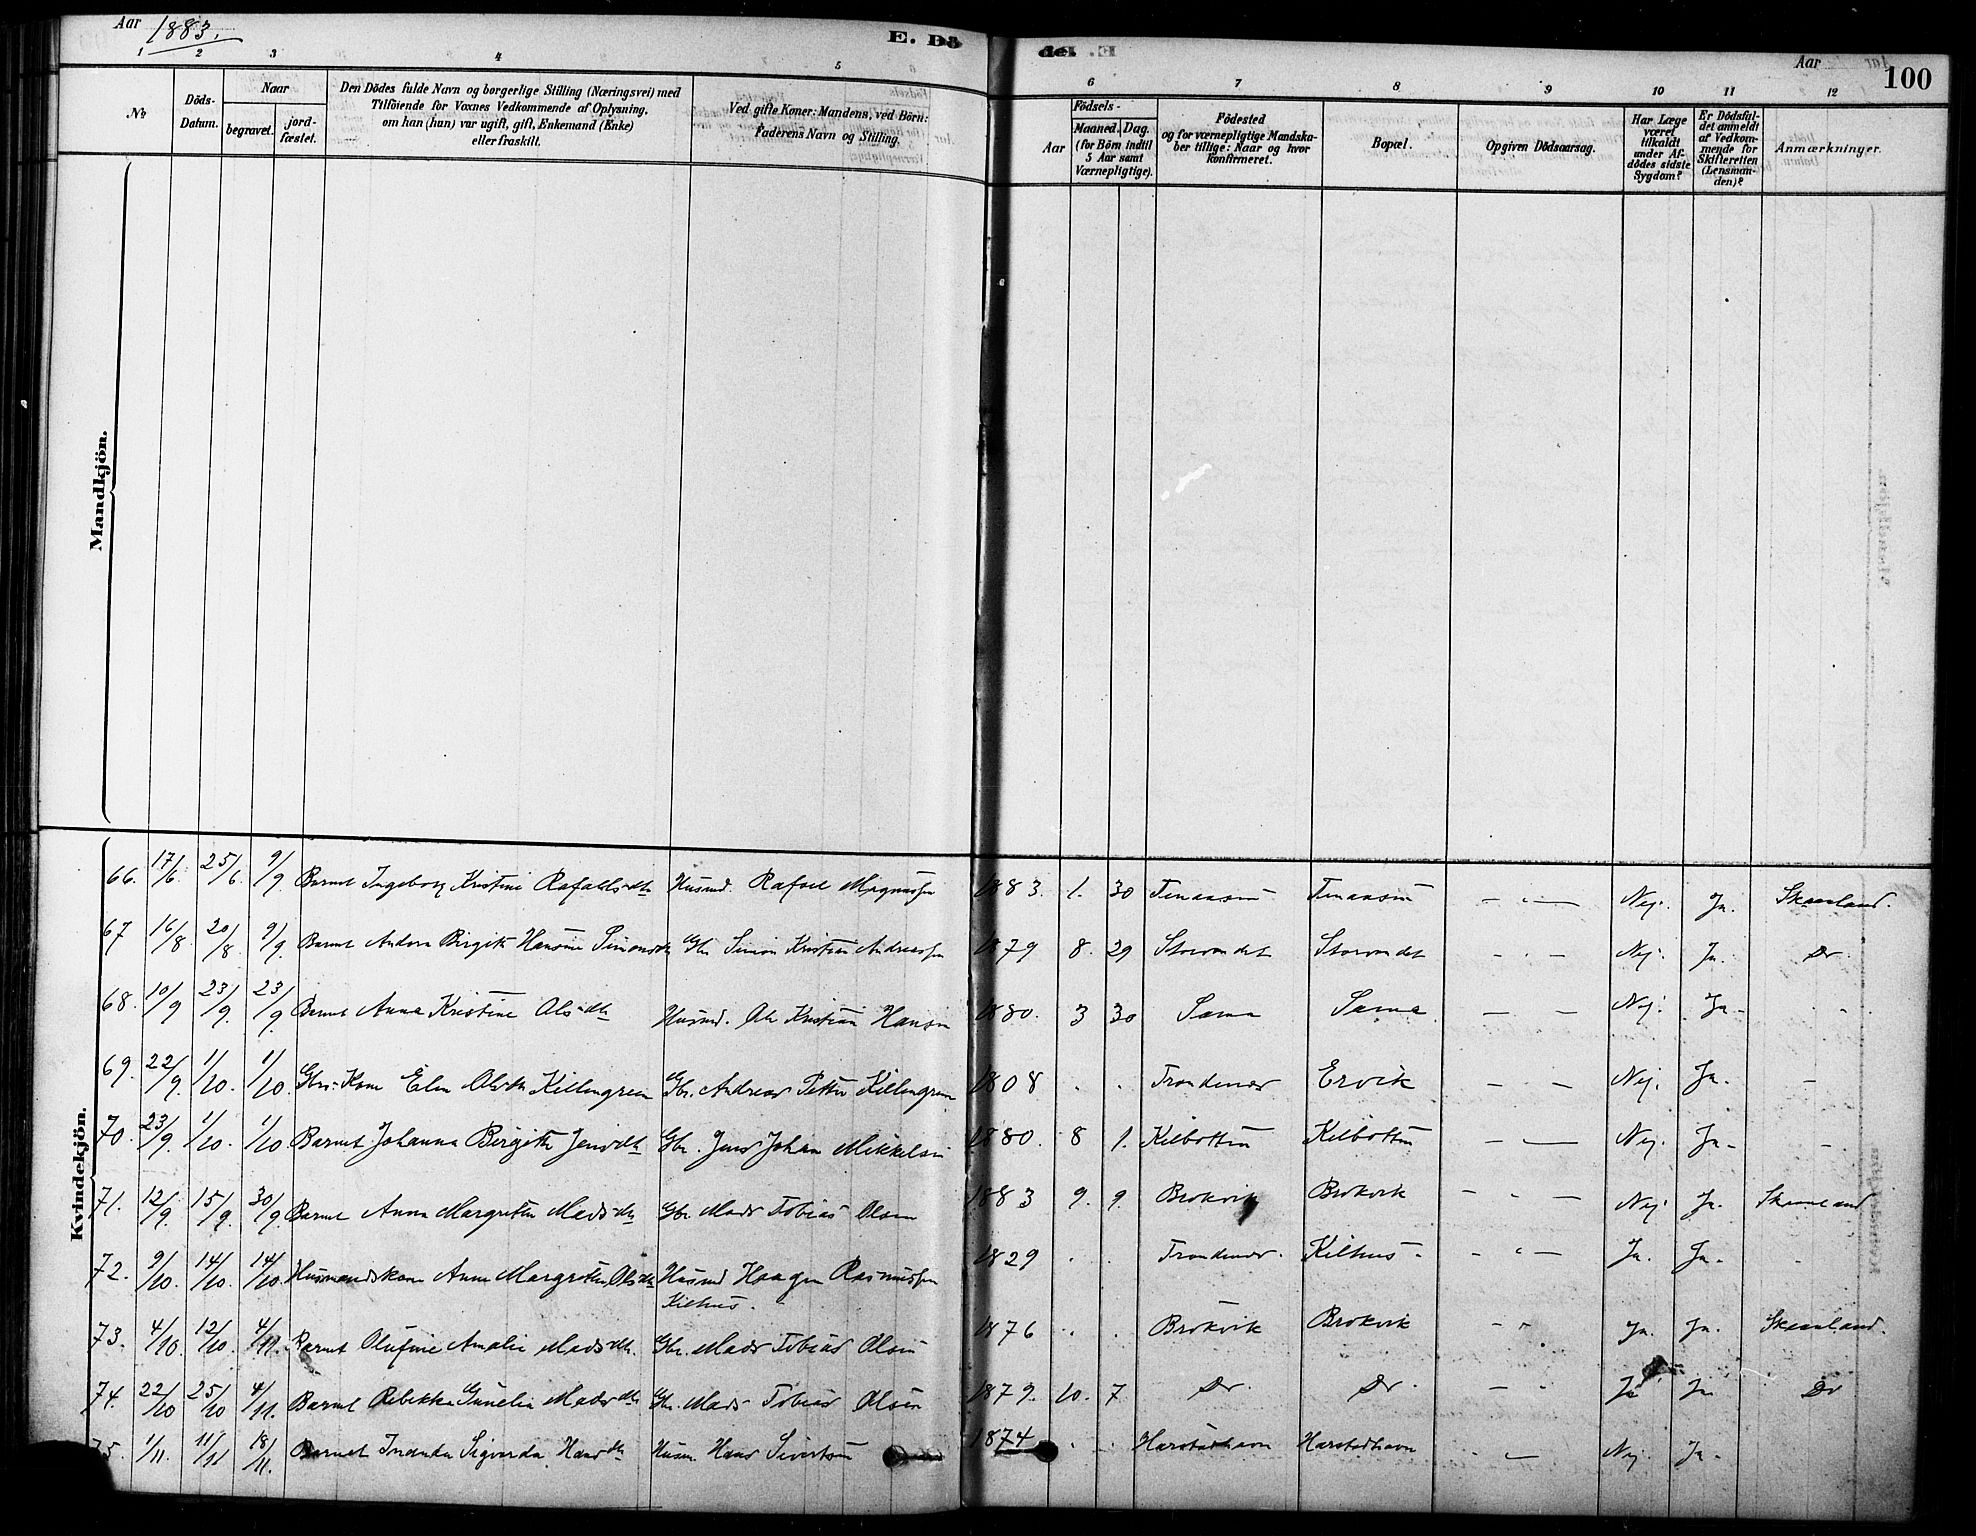 Aar 1883.
E. Dö
del. E
Aar
100
1 2 3 4 5 6 7 8 9 10 11 12
No
Döds-Datum.
Naar
begravet.
jord-fæstet.
Den Dödes fulde Navn og borgerlige Stilling (Næringsvei) med
Tilföiende for Voxnes Vedkommende af Oplysning,
om han (hun) var ugift, gift, Enkemand (Enke)
eller fraskilt.
Ved gifte Koner: Mandens, ved Börn:
Faderens Navn og Stilling.
Födsels-
Aar
Maaned. Dag.
(for Börn indtil
5 Aar samt
Værnepligtige).
Födested
og for værnepligtige Mandska-
ber tillige: Naar og hvor
konfirmeret.
Bopæl.
Opgiven Dödsaarsag.
Har Læge
været
tilkaldt
under Af-
dödes sidste
Sygdom?
Er Dödsfal-
det anmeldt
af Vedkom-
mende for
Skifteretten
(Lensman-
den)?
Anmærkninger.
Mandkjön.
Kvindekjön.
66. 17/6. 25/6. 9/9 Barnet Ingeborg Kristine Rafaelsdtr Husmd. Rafael Magnussen 1883. 1. 30 Nej. Ja. Skaanland.
67 16/8. 20/8. 9/9. Barnet Andora Birgitte Hansine Simonsdtr Gbr Simon Kristian Andreassen 1879 8. 29 Storvandet Storvandet Nej. Ja. Do
68. 10/9 23/9. 23/9. Barnet Anna Kristine Olsdtr Husmd. Ole Kristian Hansen 1880. 3 30 Sama Sama Nej. Ja.
69. 22/9. 1/10. 1/10. Gbr.-Kone Elen Olsdtr Killengreen Gbr. Andreas Petter Killengreen 1808 Trondenæs Ervik Nej. Ja.
70. 23/9. 1/10. 1/10 Barnet Johanna Birgitte Jensdtr Gbr. Jens Johan Mikkelsen 1880. 8 1. Kilbotten Kilbotten Nej. Ja.
71. 12/9. 15/9. 30/9 Barnet Anna Margrethe Madsdtr Gbr. Mads Tobias Olsen 1883 9. 9. Brokvik Brokvik Nej. Ja. Skaanland
72. 9/10. 14/10. 14/10. Husmandskone Anne Margrethe Olsdtr Husmd Haagen Rasmussen 1829 Trondenæs. Kilhus. Ja. Ja.
Kilhus.
73. 4/10 12/10 4/11. Barnet Olufine Amalie Madsdtr. Gbr. Mads Tobias Olsen 1876 Brokvik Brokvik Ja. Ja. Skaanland.
74. 22/10 25/10 4/11. Barnet Rebekka Gunelia Madsdtr Gbr. Mads Tobias Olsen 1879. 10. 7 Do. Do. Ja Ja. Do
75. 1/11. 11/11 18/11. Barnet Sigvarda Hansdtr Husm. Hans Sivertsen 1874 Harstadhavn Harstadhavn Nej Ja.